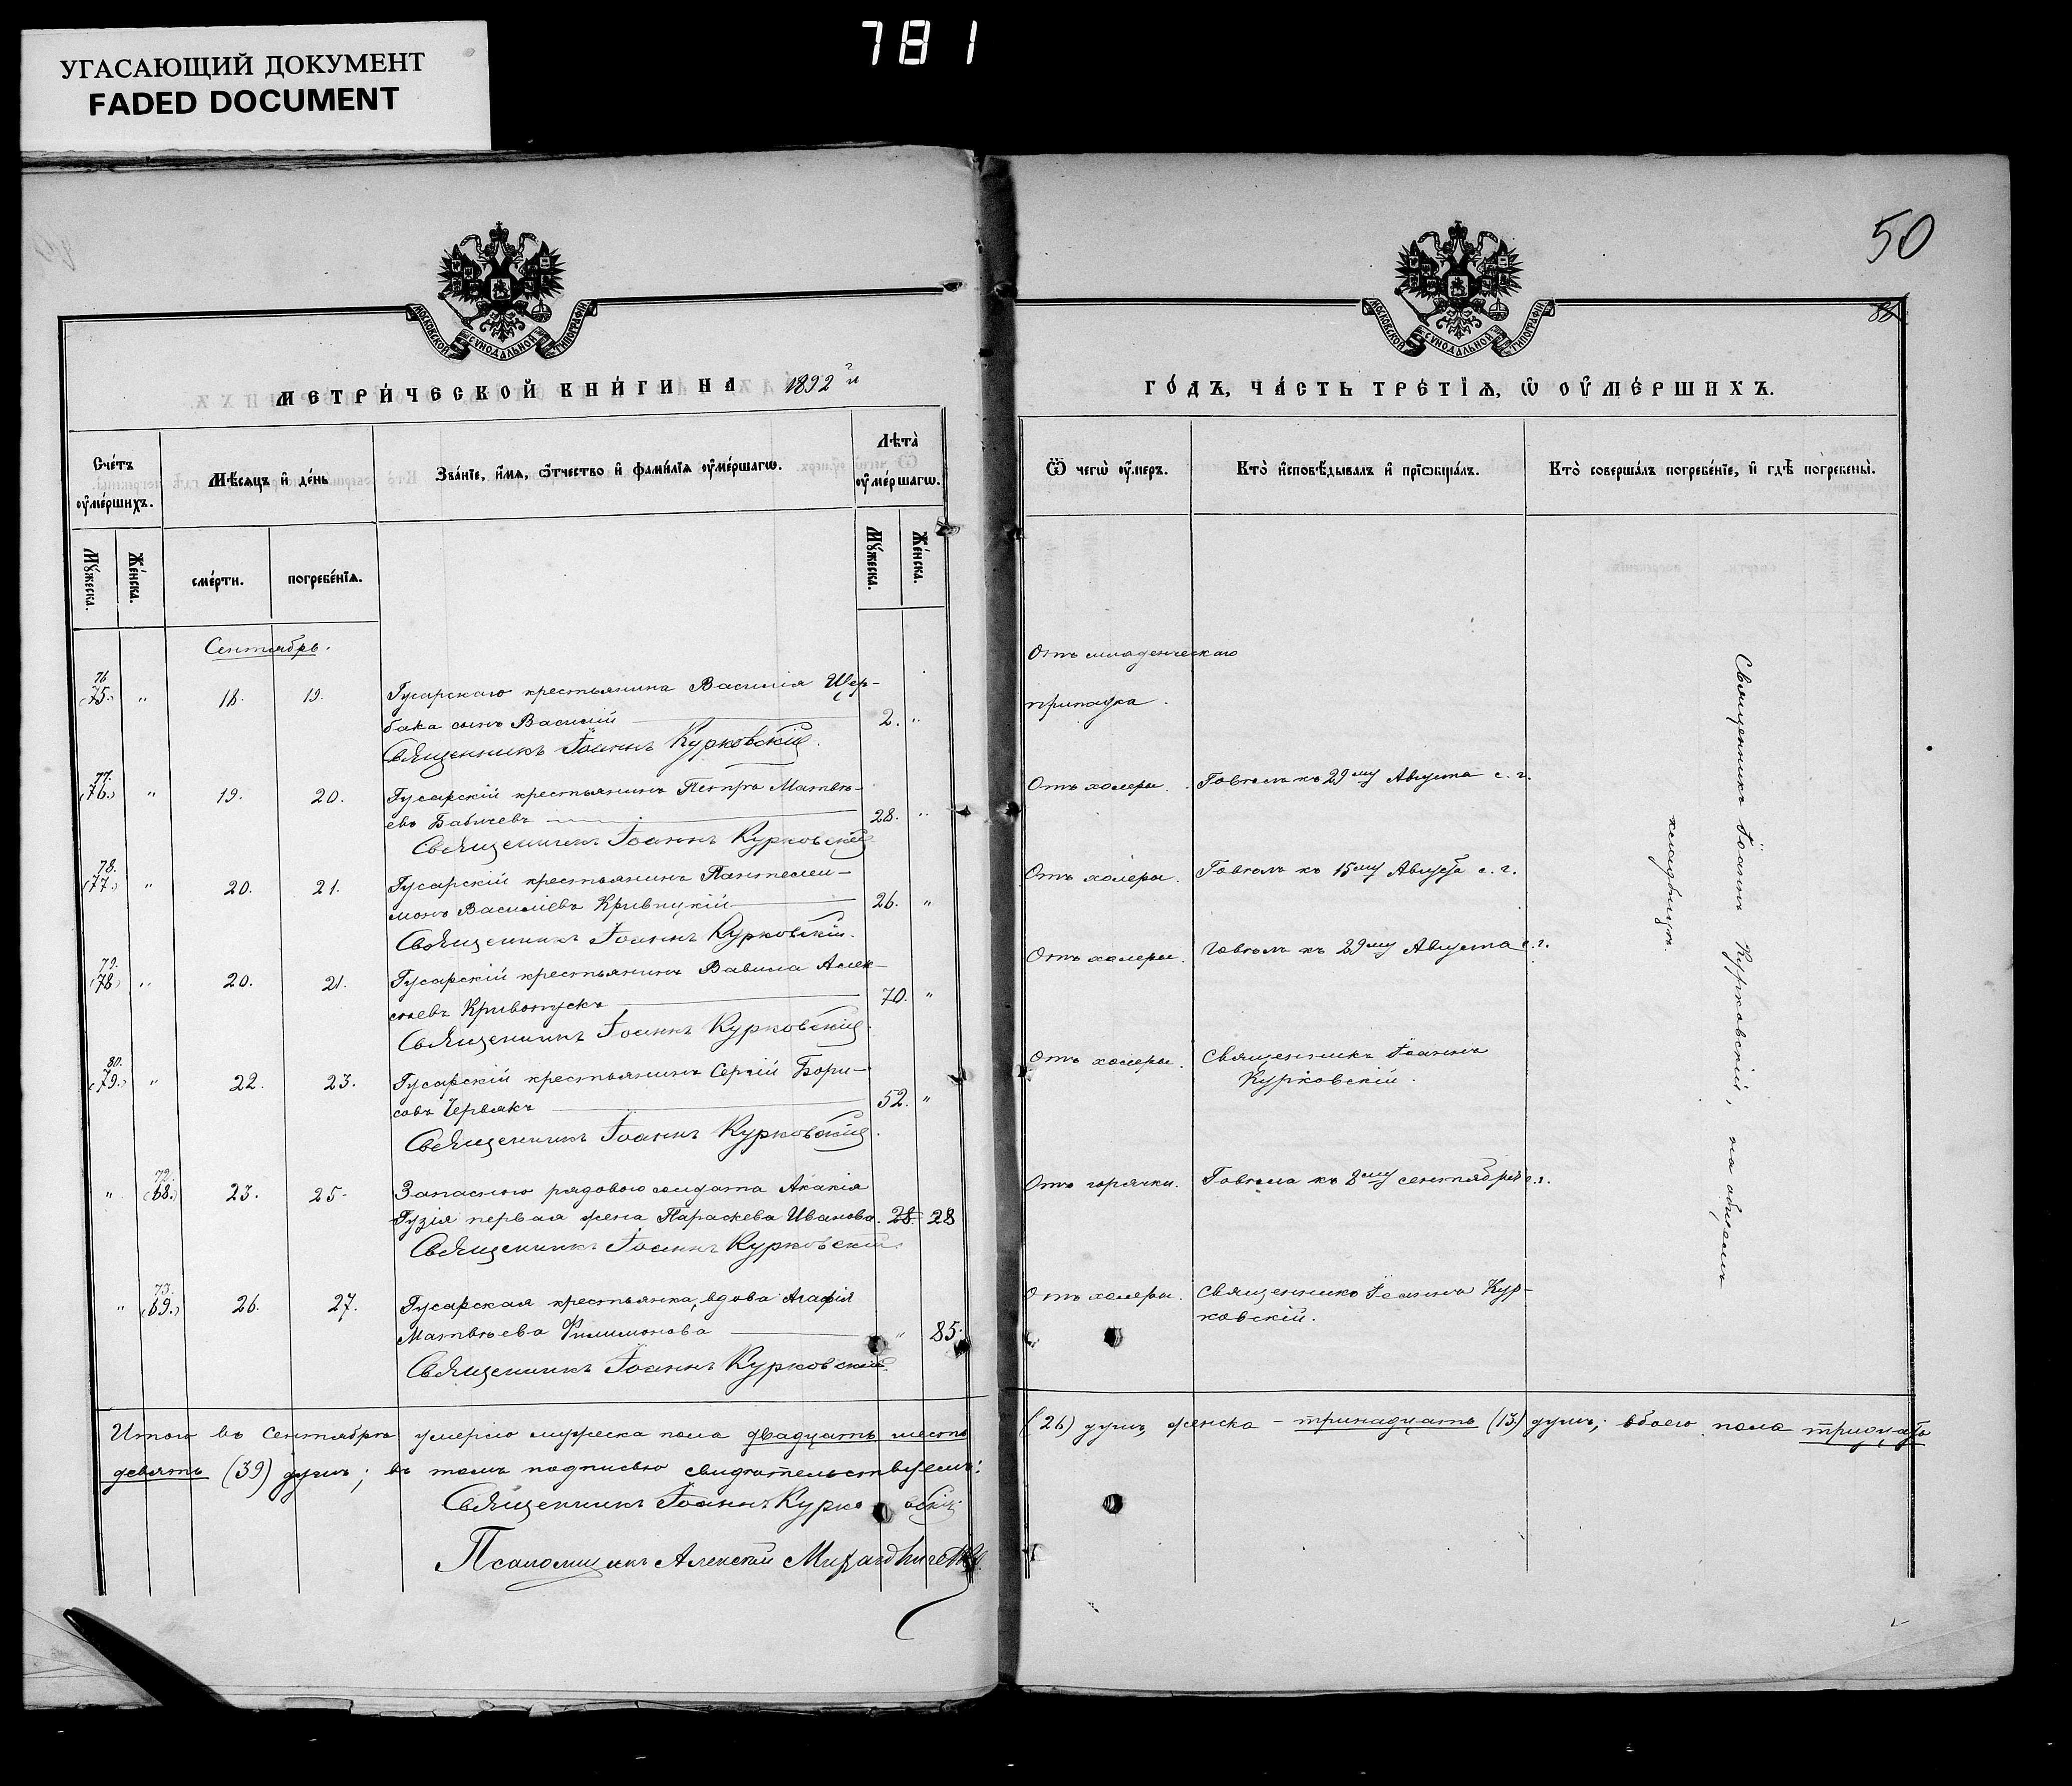 781
УГАСАЮЩИЙ ДОКУМЕНТ
FADED DOCUMENT
50
МОСКОВСКОЙ СѴНОДАЛЬНОЙ ТИПОГРАФІИ
МОСКОВСКОЙ СѴНОДАЛЬНОЙ ТИПОГРАФІИ
МЕТРИ́ЧЕСКОЙ КНИ́ГИ НА 1892й
ГО́ДЪ, ЧА́СТЬ ТРЕ́ТІѦ, Ѡ ОУ҆МЕ́РШИХЪ.
Сче́тъ оу҆ме́ршихъ.
Мѣ́сѧцъ и҆ де́нь
Зва́нїе, и҆́мѧ, ѻ҆́тчество и҆ фами́лїѧ оу҆ме́ршагѡ.
Лѣта̀ оу҆ме́ршагѡ.
Ѿ чегѡ̀ оу҆́меръ.
Кто̀ и҆сповѣ́дывалъ и҆ прїѡбща́лъ.
Кто̀ соверша́лъ погребе́нїе, и҆ гдѣ̀ погребены̀.
Мꙋ́жеска. Же́нска. сме́рти. погребе́нїѧ. Мꙋ́жеска. Же́нска.
Сентябрь.
76 (75.) " 18. 19. Гусарскаго крестьянина Василія Щер-
бака сынъ Василій 2. "
Священникъ Іоаннъ Курковскій.
Отъ младенческаго
припадка.
77. (76.) " 19. 20. Гусарскій крестьянинъ Петръ Матвѣ-
евъ Бабичевъ 28. "
Священникъ Іоаннъ Курковскій
Отъ холеры. Говѣлъ къ 29му Августа с. г.
78. (77.) " 20. 21. Гусарскій крестьянинъ Пантелеи-
монъ Василіевъ Кривицкій 26. "
Священникъ Іоаннъ Курковскій.
Отъ холеры. Говѣлъ къ 15му Августа с. г.
79. (78) " 20. 21. Гусарскій крестьянинъ Вавила Алек-
сѣевъ Кривопускъ 70. "
Священникъ Іоаннъ Курковскій.
Отъ холеры. Говѣлъ къ 29му Августа с. г.
80. (79.) " 22. 23. Гусарскій крестьянинъ Сергій Бори-
совъ Червякъ 52. "
Священникъ Іоаннъ Курковскій.
Отъ холеры. Священникъ Іоаннъ
Курковскій.
" 72. (68.) 23. 25. Запаснаго рядового солдата Акакія
Гузія первая жена Параскева Иванова. 28. 28
Священникъ Іоаннъ Курковскій.
Отъ горячки. Говѣла къ 8му сентября с. г.
" 73. (69.) 26. 27. Гусарская крестьянка, вдова Агафія
Матвѣева Филимонова " 85.
Священникъ Іоаннъ Курковскій.
Отъ холеры. Священникъ Іоаннъ Кур-
ковскій.
Священникъ Іоаннъ Курковскій, на общемъ
кладбищѣ.
Итого въ Сентябрѣ умерло мужеска пола двадцать шесть
(26) душъ, женска – тринадцать (13) душъ; обоего пола тридцать
девять (39) душъ; въ томъ подписью свидѣтельствуемъ:
Священникъ Іоаннъ Курковскій.
Псаломщикъ Алексій